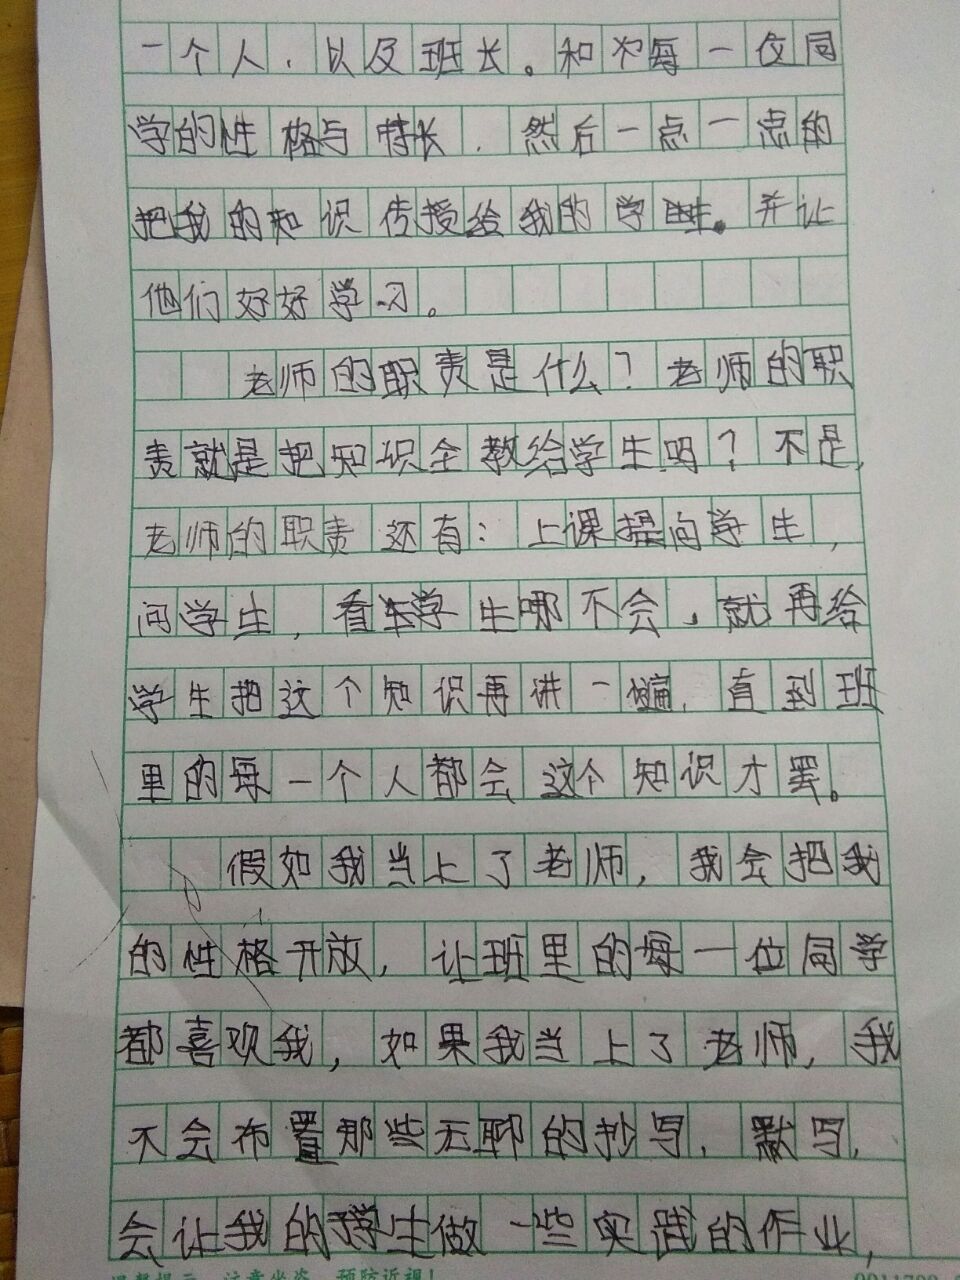 一个人，以及班长。和每一位同
学的性格与特长，然后一点一点的
把我的知识传授给我的学生。并让
他们好好学习。
老师的职责是什么？老师的职
责就是把知识全教给学生吗？不是，
老师的职责还有：上课提问学生，
问学生，看学生哪不会，就再给
学生把这个知识再讲一遍，直到班
里的每一个人都会这个知识才罢。
假如我当上了老师，我会把我
的性格开放，让班里的每一位同学
都喜欢我，如果我当上了老师，我
不会布置那些无聊的抄写，默写，
会让我的学生做一些实践的作业，
注意坐姿 预防近视！